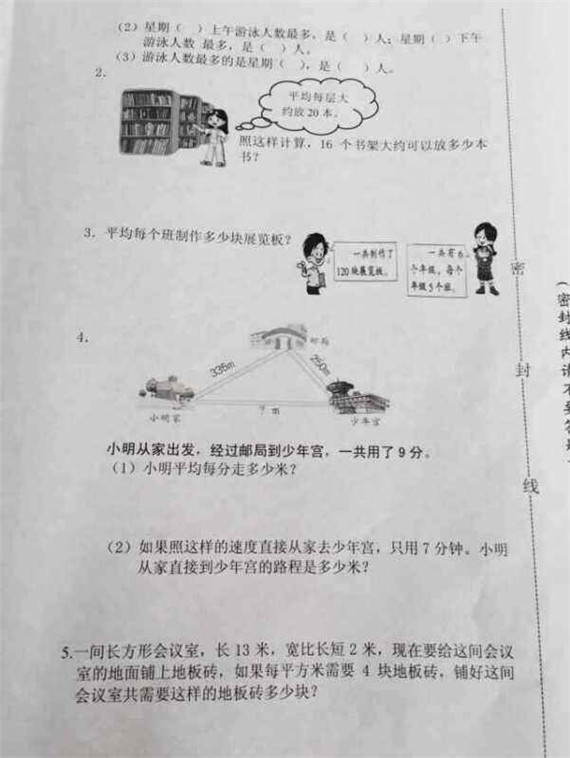 (2) 星期(  )上午游泳人数最多，是(  )人；星期(  )下午
游泳人数 最多，是(  )人。
(3) 游泳人数最多的是星期(  )，是(  )人。
2.
平均每层大
约放 20 本。
照这样计算，16 个书架大约可以放多少本
书？
3. 平均每个班制作多少块展览板？
一共制作了
120块展览板。
一共有
个年级，每个
年级5个班。
4.
邮局
336m
250m
小明家
? m
少年宫
小明从家出发，经过邮局到少年宫，一共用了 9 分。
(1) 小明平均每分走多少米？
(2) 如果照这样的速度直接从家去少年宫，只用 7 分钟。小明
从家直接到少年宫的路程是多少米？
5.一间长方形会议室，长 13 米，宽比长短 2 米，现在要给这间会议
室的地面铺上地板砖，如果每平方米需要 4 块地板砖，铺好这间
会议室共需要这样的地板砖多少块？
密
封
线
(
密
封
线
内